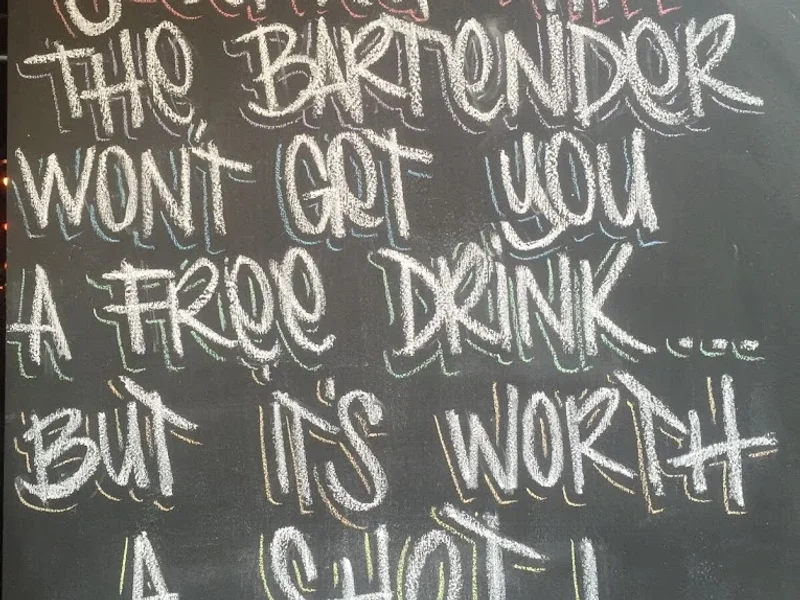 THE BARTENDER
WON'T GET YOU
A FREE DRINK...
BUT IT'S WORTH
A SHOT!